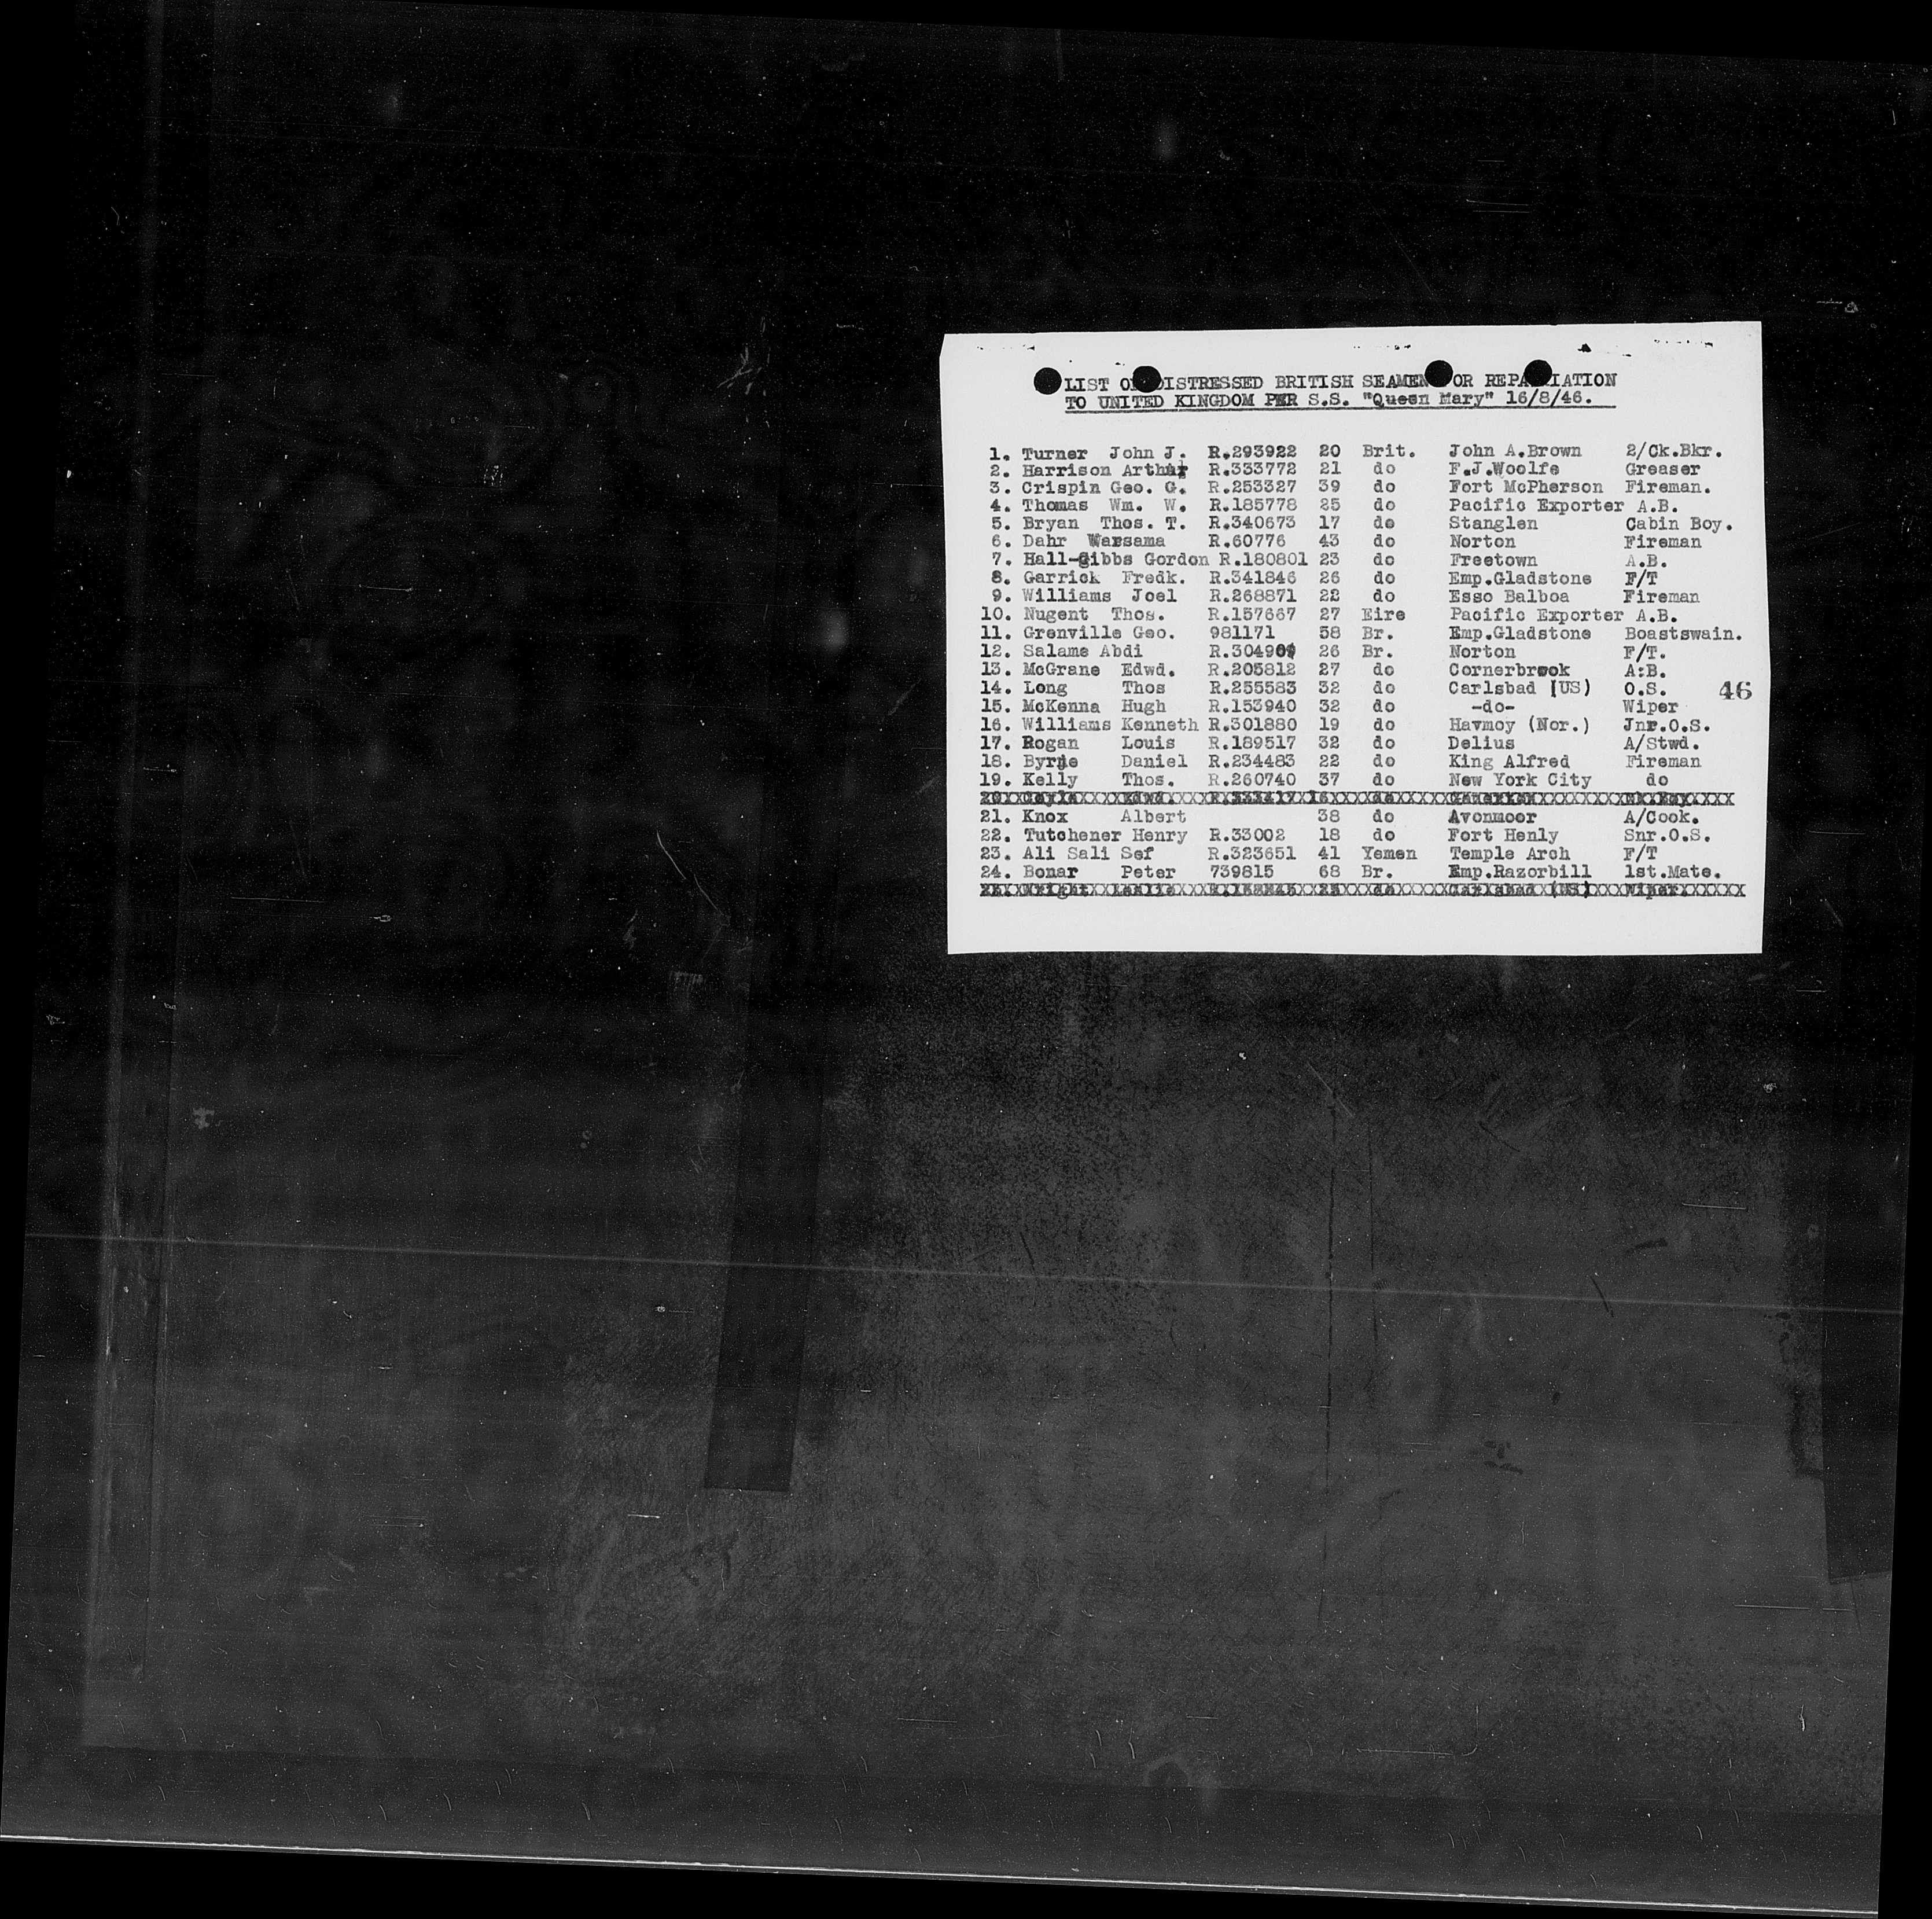 LIST OF DISTRESSED BRITISH SEAMEN FOR REPATRIATION
TO UNITED KINGDOM PER S.S. "Queen Mary" 16/8/46.
1. Turner John J. R.293922 20 Brit. John A.Brown 2/Ck.Bkr.
2. Harrison Arthur R.333772 21 do F.J.Woolfe Greaser
3. Crispin Geo. G. R.253327 39 do Fort McPherson Fireman.
4. Thomas Wm. W. R.185778 25 do Pacific Exporter A.B.
5. Bryan Thos. T. R.340673 17 do Stanglen Cabin Boy.
6. Dahr Warsama R.60776 43 do Norton Fireman
7. Hall-Gibbs Gordon R.180801 23 do Freetown A.B.
8. Garrick Fredk. R.341846 26 do Emp.Gladstone F/T
9. Williams Joel R.268871 22 do Esso Balboa Fireman
10. Nugent Thos. R.157667 27 Eire Pacific Exporter A.B.
11. Grenville Geo. 981171 58 Br. Emp.Gladstone Boastswain.
12. Salame Abdi 26 Br. Norton F/T.
13. McGrane Edwd. R.205812 27 do Cornerbrook A:B.
14. Long Thos R.255583 32 do Carlsbad (US) O.S. 46
15. McKenna Hugh R.153940 32 do -do- Wiper
16. Williams Kenneth R.301880 19 do Havmoy (Nor.) Jnr.O.S.
17. Rogan Louis R.189517 32 do Delius A/Stwd.
18. Byrne Daniel R.234483 22 do King Alfred Fireman
19. Kelly Thos. R.260740 37 do New York City do
21. Knox Albert 38 do Avonmoor A/Cook.
22. Tutchener Henry R.33002 18 do Fort Henly Snr.O.S.
23. Ali Sali Sef R.323651 41 Yemen Temple Arch F/T
24. Bonar Peter 739815 68 Br. Emp.Razorbill 1st.Mate.
25. Wright Leslie do Carlsbad (US) Wiper.